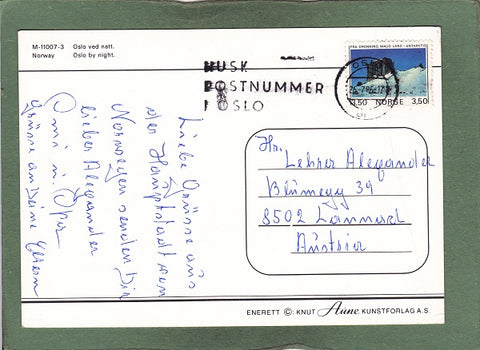 M-11007-3 Oslo ved natt.
Norway Oslo by night.
HUSK
POSTNUMMER
I OSLO
FRA DRONNING MAUD LAND - ANTARCTIC
OSLO
3,50 NORGE 3,50
Liebe Grüsse aus
der Hauptstadt von
Norwegen senden Dir
lieber Alexander
Omi u. Opa
Grüsse an Deine Eltern
Hr.
Lehrer Alexander
Blumegg 39
8502 Lannach
Austria
ENERETT ©: KNUT Aune KUNSTFORLAG A.S.